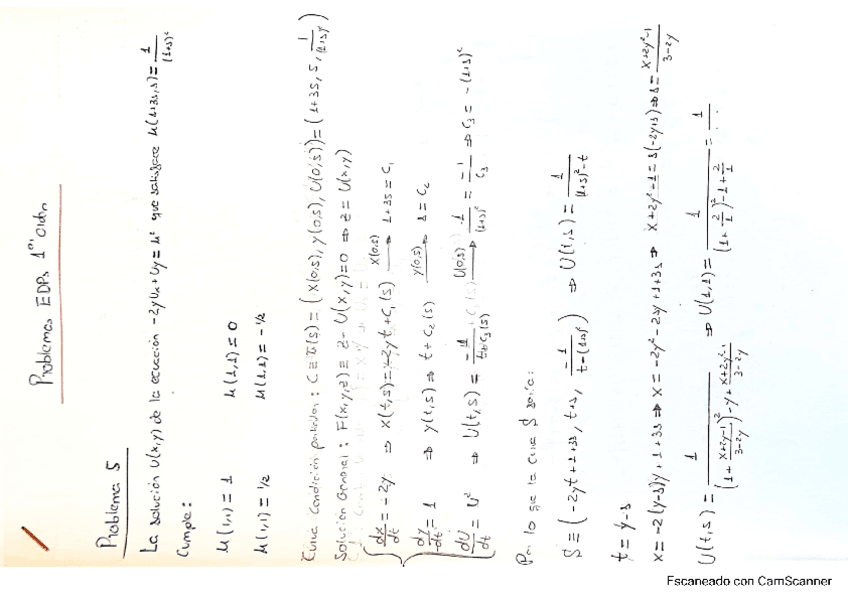 Problemas EDPs 1er Orden
Problema 5
La solución U(x,y) de la ecuación -2yUx + Uy = u² que satisface u(1+3s,s) = 1/(1+s)²
Cumple:
u(1,1) = 1    u(1,1) = 0
u(1,1) = 1/2    u(1,1) = -1/2
Curva Condición : C ≡ (s) = (X(0,s), Y(0,s), U(0,s)) = (1+3s, s, 1/(1+s)²)
Solución General : F(x,y,z) ≡ z - U(x,y) = 0 ⇒ z = U(x,y)
dx/dt = -2y ⇒ x(t,s) = -2yt + C₁(s) X(0,s) → 1+3s = C₁
dy/dt = 1 ⇒ y(t,s) ⇒ t + C₂(s) Y(0,s) → s = C₂
dU/dt = U² ⇒ U(t,s) = -1/(t+C₃(s)) U(0,s) → 1/(1+s)² = -1/C₃ ⇒ C₃ = -(1+s)²
Por lo que la S sería:
S ≡ (-2yt+1+3s, t+s, -1/(t-(1+s)²)) ⇒ U(t,s) = 1/((1+s)²-t)
t = y-s
x = -2(y-s)y+1+3s ⇒ x = -2y²-2sy+1+3s ⇒ x+2y²-1 = s(-2y+3) ⇒ s = (x+2y²-1)/(3-2y)
U(t,s) = 1/((1+(x+2y-1)/(3-2y))²-y+(x+2y²-1)/(3-2y)) ⇒ U(1,1) = 1/((1+2/1)²-1+2/1) = 1/
Escaneado con CamScanner